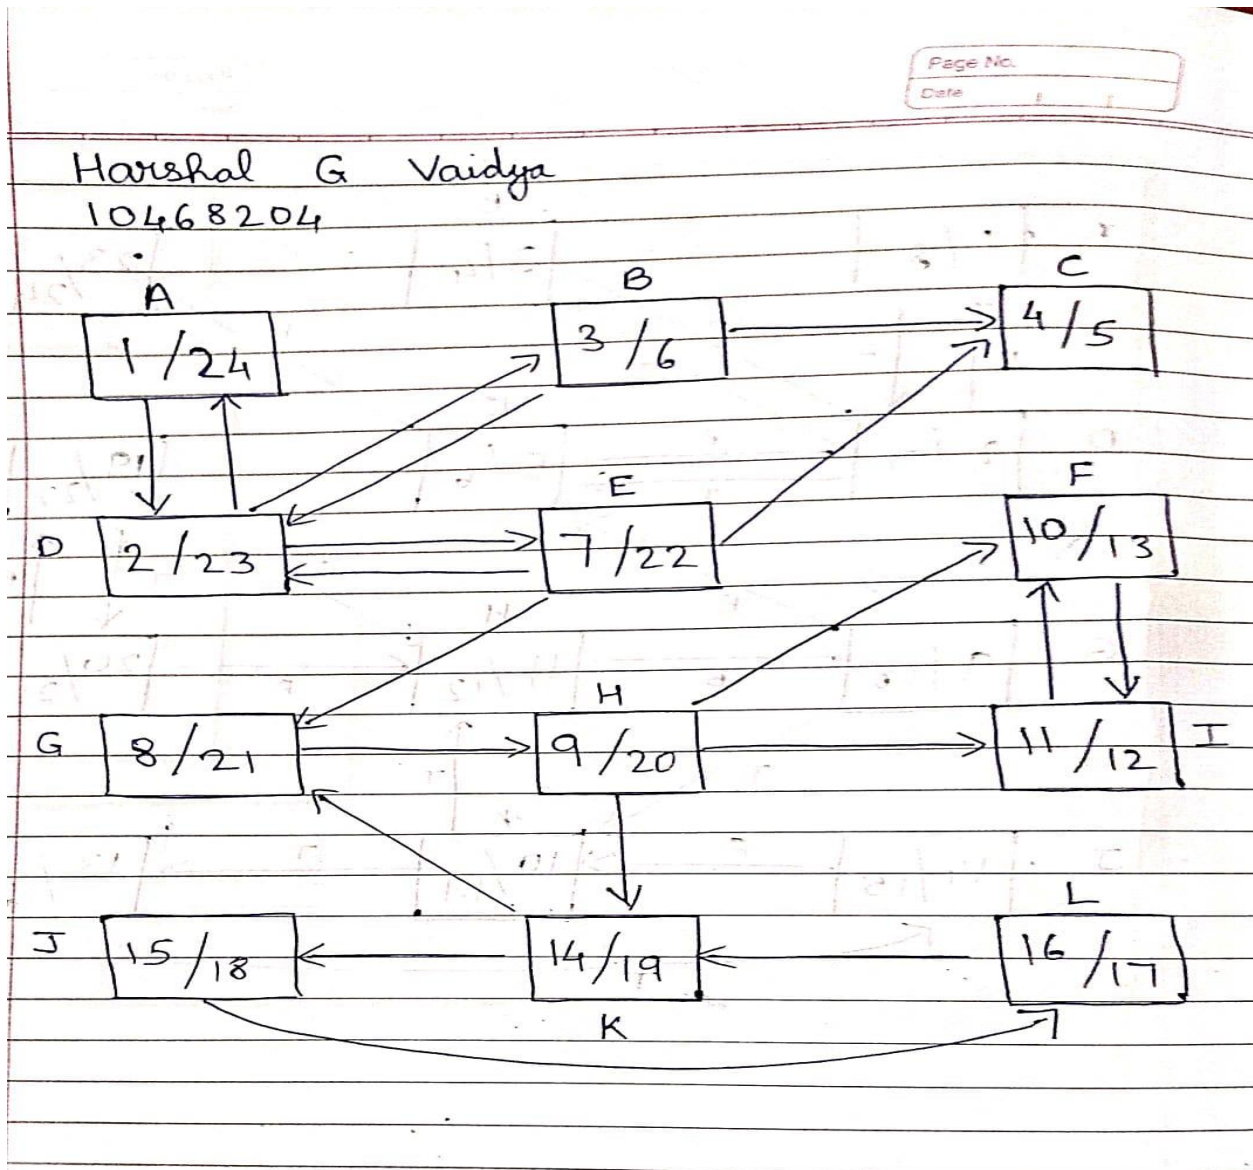 Page No.
Date
Harshal G Vaidya
10468204
A
B
C
1/24
3/6
4/5
E
F
D
2/23
7/22
10/13
H
G
8/21
9/20
11/12
I
L
J
15/18
14/19
16/17
K